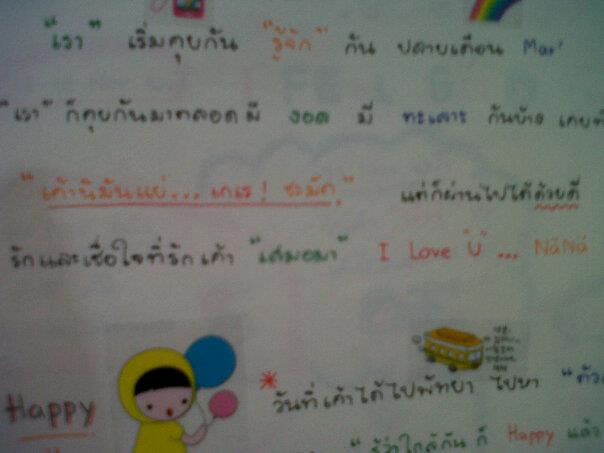 "เรา" เริ่มคุยกัน "รู้จัก" กัน ปลายเดือน Mar'
"เรา" ก็คุยกันมาตลอด มี งอน มี ทะเลาะ กันบ้าง เคยท
"เค้านิมันแย่... เกเร! ชะมัด." แต่ก็ผ่านไปได้ด้วยดี
รักและเชื่อใจที่รักเค้า "เสมอมา" I Love "U" ... NăNá
* วันที่เค้าได้ไปพัทยา ไปหา "ตัวเ
Happy
"รู้ว่าใกล้กัน ก็ Happy แล้ว